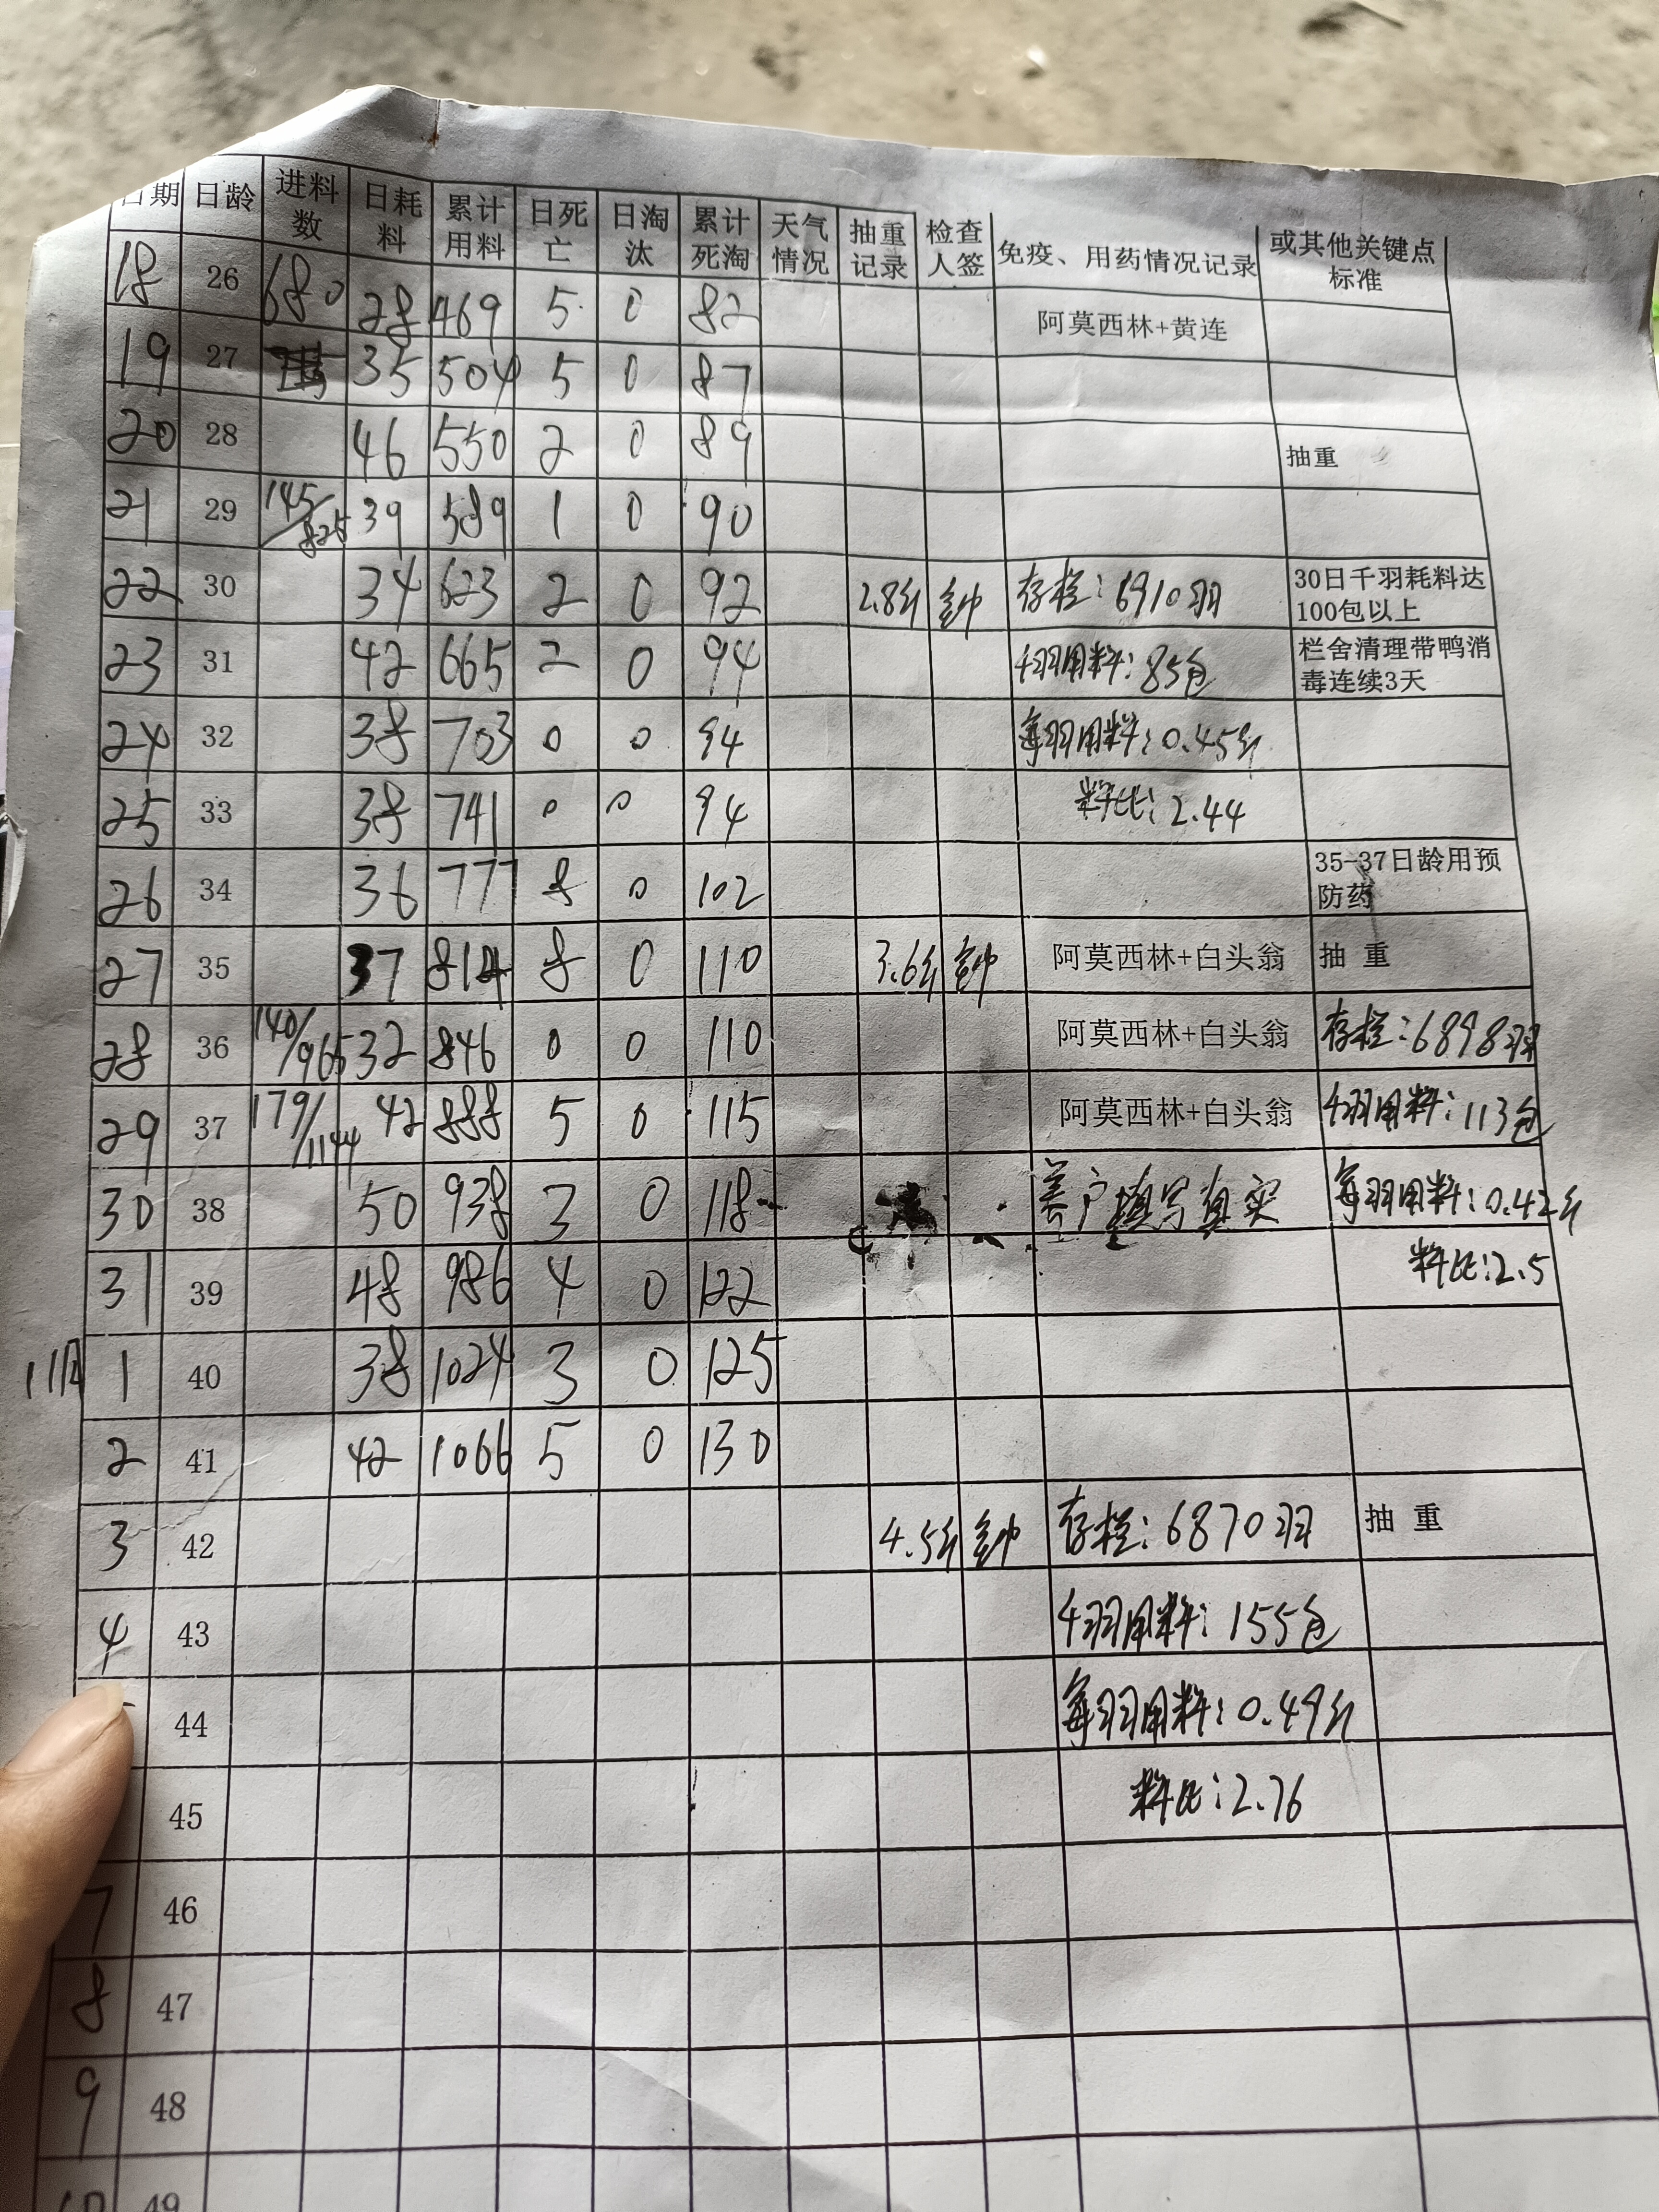 日期 日龄 进料数 日耗料 累计用料 日死亡 日淘汰 累计死淘 天气情况 抽重记录 检查人签 免疫、用药情况记录 或其他关键点标准
18 26 680 28 469 5 0 82 阿莫西林+黄连
19 27 35 504 5 0 87
20 28 46 550 2 0 89 抽重
21 29 145/825 39 589 1 0 90
22 30 34 623 2 0 92 2.8斤 存栏:6910羽 30日千羽耗料达100包以上
23 31 42 665 2 0 94 千羽用料:85包 栏舍清理带鸭消毒连续3天
24 32 38 703 0 0 94 每羽用料:0.45斤
25 33 38 741 0 0 94 料比:2.44
26 34 36 777 8 0 102 35-37日龄用预防药
27 35 37 814 8 0 110 3.6斤 阿莫西林+白头翁 抽 重
28 36 140/965 32 846 0 0 110 阿莫西林+白头翁 存栏:6898羽
29 37 179/1144 42 888 5 0 115 阿莫西林+白头翁 千羽用料:113包
30 38 50 938 3 0 118 养户填写真实 每羽用料:0.42斤
31 39 48 986 4 0 122 料比:2.5
11月 1 40 38 1024 3 0 125
2 41 42 1066 5 0 130
3 42 4.5斤 存栏:6870羽 抽 重
4 43 千羽用料:155包
44 每羽用料:0.49斤
45 料比:2.76
7 46
8 47
9 48
49